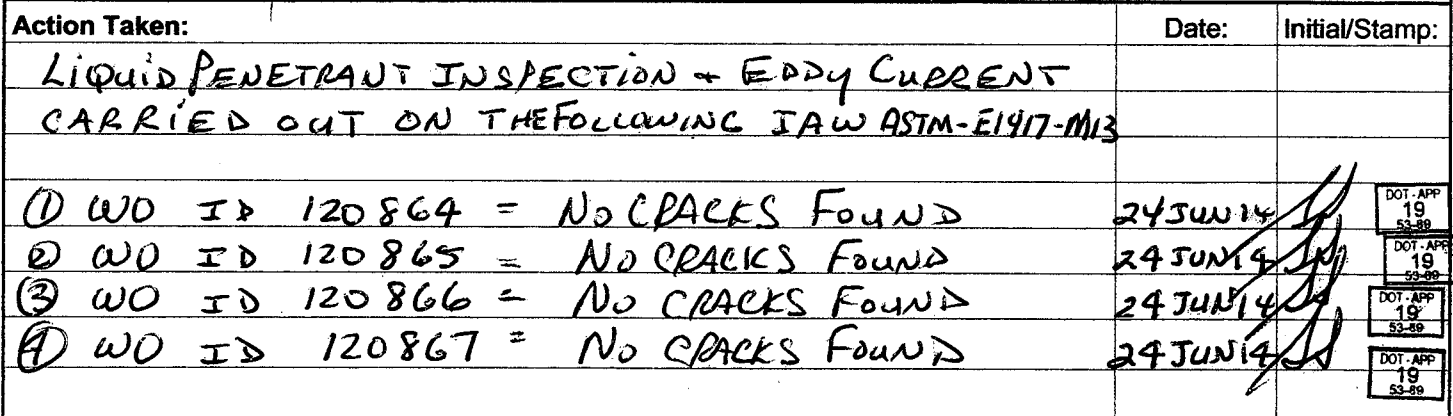 Action Taken: Date: Initial/Stamp:
LIQUID PENETRANT INSPECTION + EDDY CURRENT
CARRIED OUT ON THE FOLLOWING IAW ASTM-E1417-M13
① WO ID 120864 = NO CRACKS FOUND 24 JUN 14
DOT-APP
19
53-89
② WO ID 120865 = NO CRACKS FOUND 24 JUN 14
DOT-APP
19
53-89
③ WO ID 120866 = NO CRACKS FOUND 24 JUN 14
DOT-APP
19
53-89
④ WO ID 120867 = NO CRACKS FOUND 24 JUN 14
DOT-APP
19
53-89